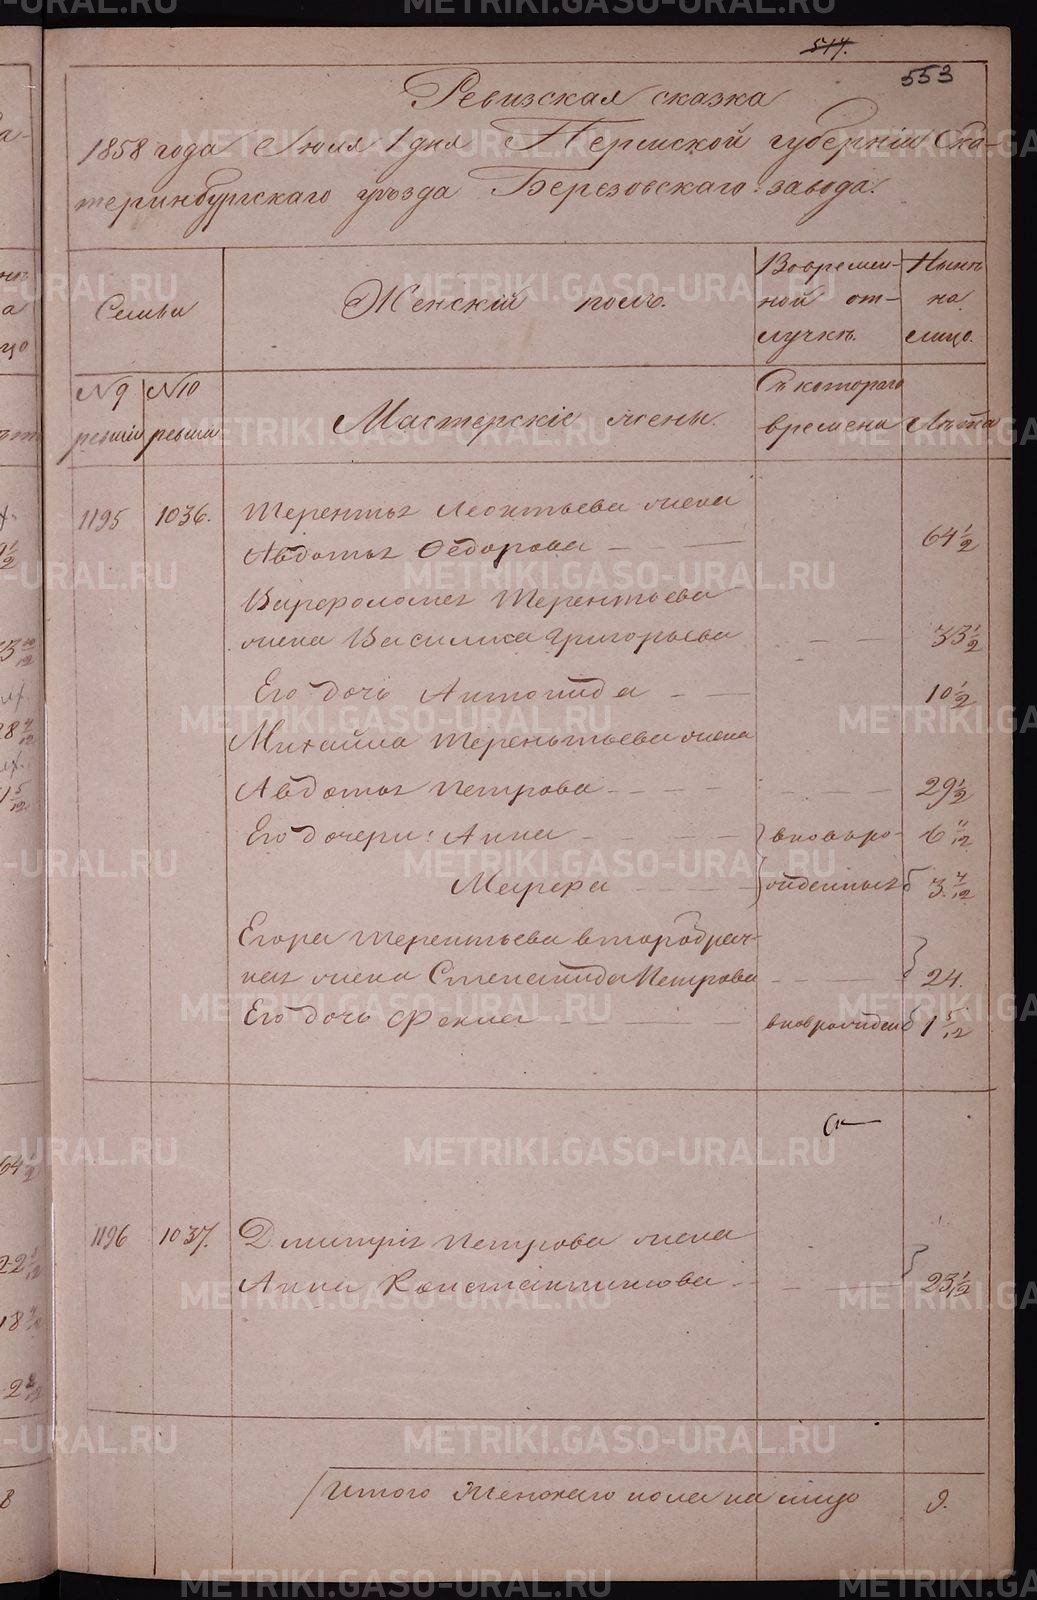 514.
553
Ревизская сказка
1858 года Июля 1 дня Пермской губернiи Ека-
теринбургскаго уѣзда Березовскаго завода.
Семьи
Женскiй полъ.
Во времен-
ной от-
лучкѣ.
Нынѣ
на
лицо.
N 9
ревизiи
N 10
ревизiи
Мастерскiе жены.
Съ котораго
времени
Лѣта
1195 1036. Терентья Леонтьева жена
Авдотья Федорова 64 1/2
Варфоломея Терентьева
жена Василиса Григорьева 33 1/2
Его дочь Антонида 10 1/2
Михайла Терентьева жена
Авдотья Петрова 29 1/2
Его дочери: Анна вновь ро- 6 11/12
Марфа жденныя 3 7/12
Егора Терентьева второбрач-
ная жена Степанида Петрова 24.
Его дочь Фекла вноврожден 1 5/12
1196 1037. Дмитрiя Петрова жена
Анна Константинова 23 1/2
Итого женскаго пола на лицо 9.
METRIKI.GASO-URAL.RU